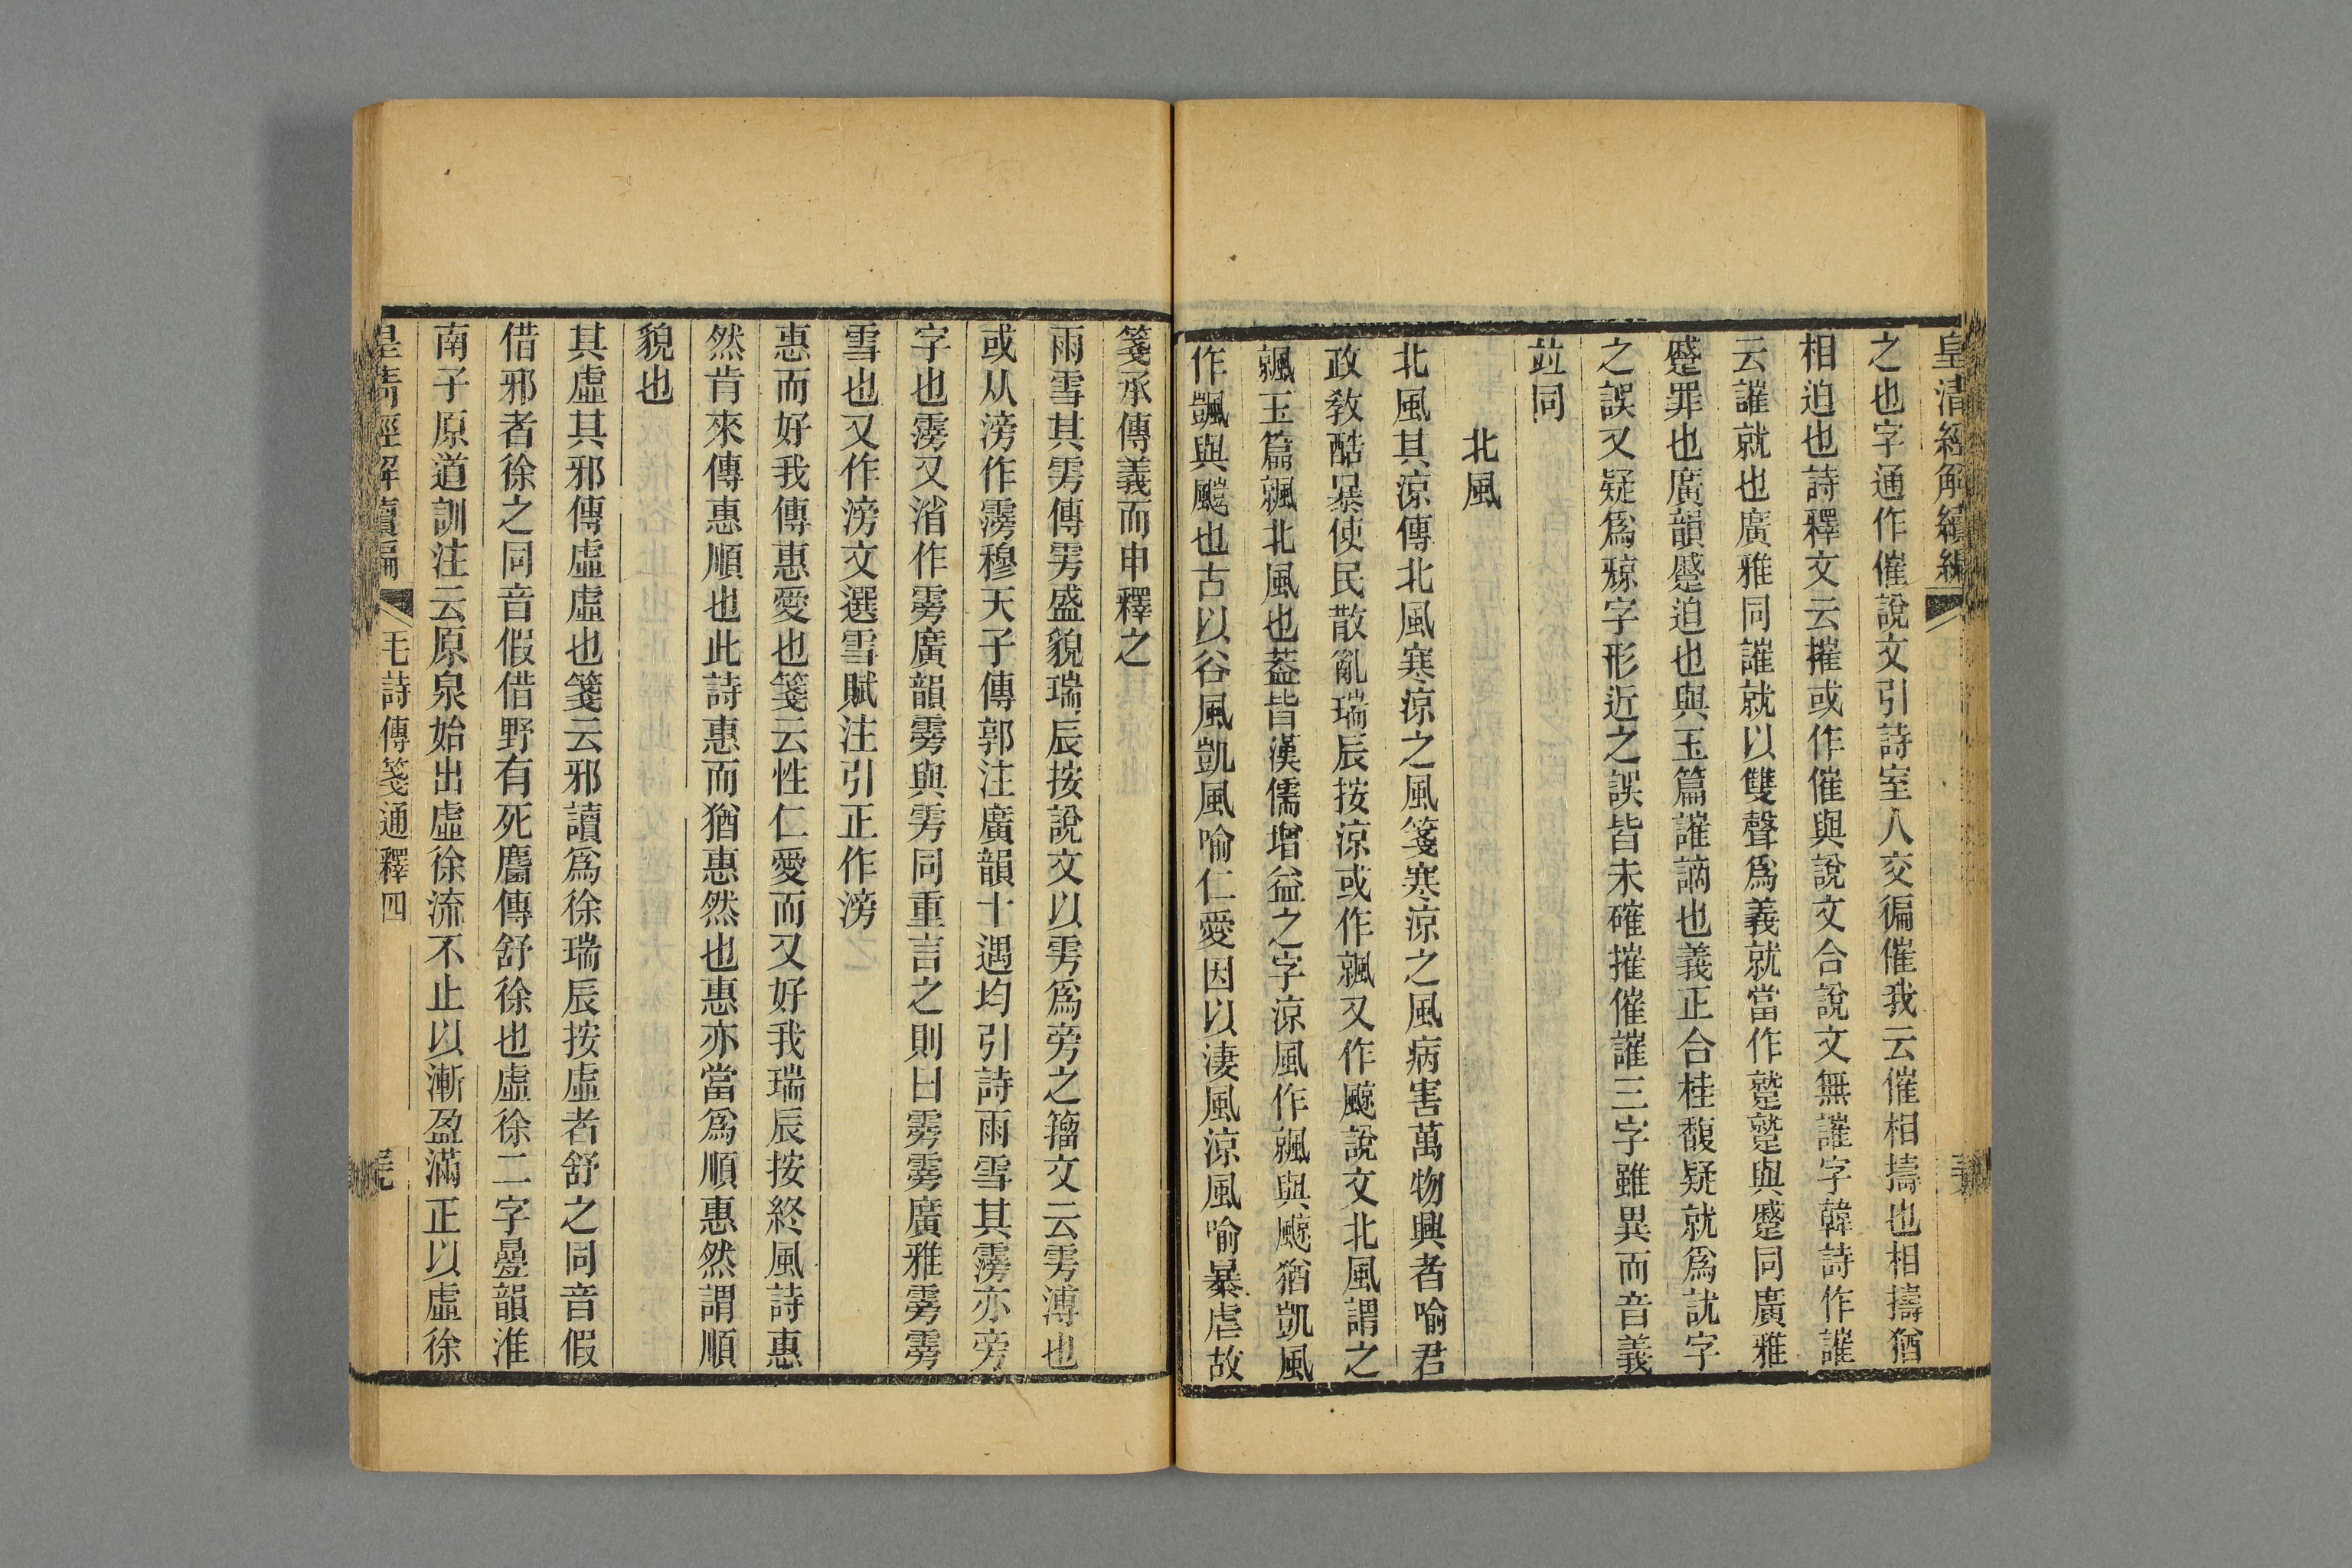 皇清經解續編
之也字通作催說文引詩室人交徧催我云催相擣也相擣猶
相迫也詩釋文云摧或作催與說文合說文無讙字韓詩作讙
云讙就也廣雅同讙就以雙聲爲義就當作蹵蹵與蹙同廣雅
蹙罪也廣韻蹙迫也與玉篇讙謫也義正合桂馥疑就爲訧字
之誤又疑爲𠅙字形近之誤皆未確摧催讙三字雖異而音義
竝同
北風
北風其涼傳北風寒涼之風箋寒涼之風病害萬物興者喻君
政敎酷暴使民散亂瑞辰按涼或作飊又作飈說文北風謂之
飊玉篇飊北風也葢皆漢儒增益之字涼風作飊與飈猶凱風
作颽與颹也古以谷風凱風喻仁愛因以淒風涼風喻暴虐故
箋承傳義而申釋之
雨雪其雱傳雱盛貌瑞辰按說文以雱爲旁之籀文云雱溥也
或从滂作霶穆天子傳郭注廣韻十遇均引詩雨雪其霶亦旁
字也霶又消作雾廣韻雾與雱同重言之則曰雾雾廣雅雾雾
雪也又作滂文選雪賦注引正作滂
惠而好我傳惠愛也箋云性仁愛而又好我瑞辰按終風詩惠
然肯來傳惠順也此詩惠而猶惠然也惠亦當爲順惠然謂順
貌也
其虛其邪傳虛虛也箋云邪讀爲徐瑞辰按虛者舒之同音假
借邪者徐之同音假借野有死麕傳舒徐也虛徐二字疊韻淮
南子原道訓注云原泉始出虛徐流不止以漸盈滿正以虛徐
皇清經解續編 毛詩傳箋通釋四